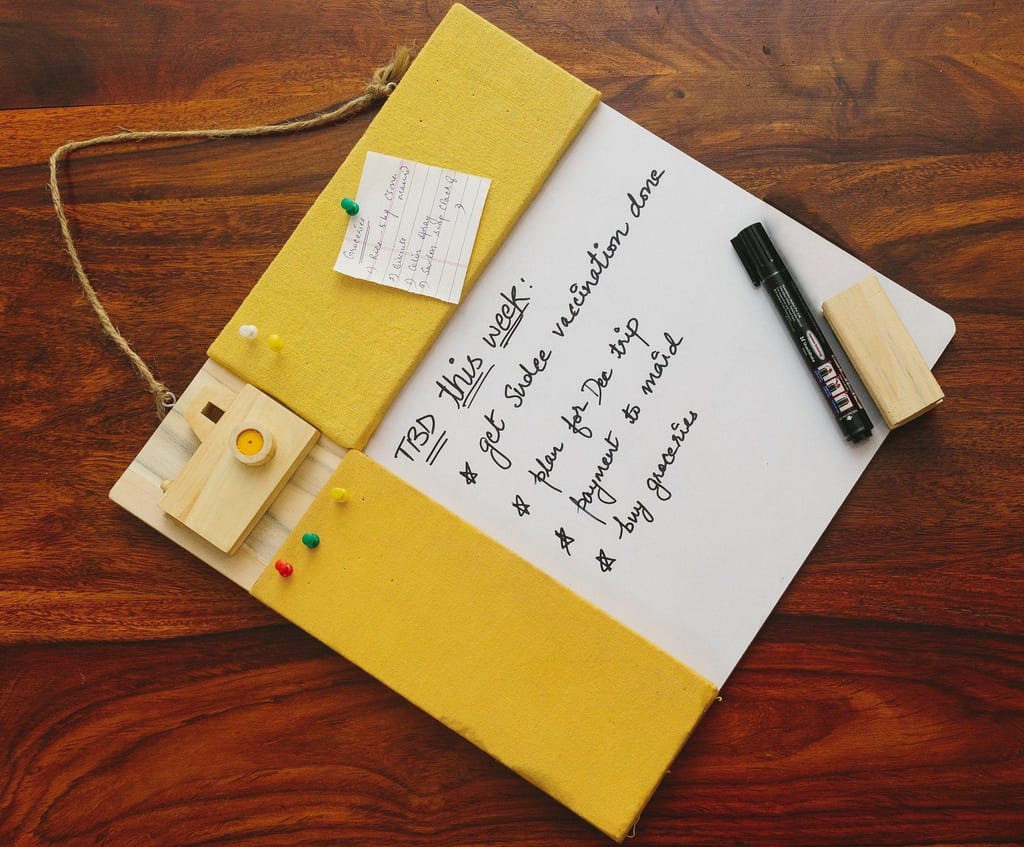 TBD this week:
☆ get Sudee vaccination done
☆ plan for Dec trip
☆ payment to maid
☆ buy groceries
Groceries
1) Rice 5 kg
2) Biscuits
3) Colin Spray